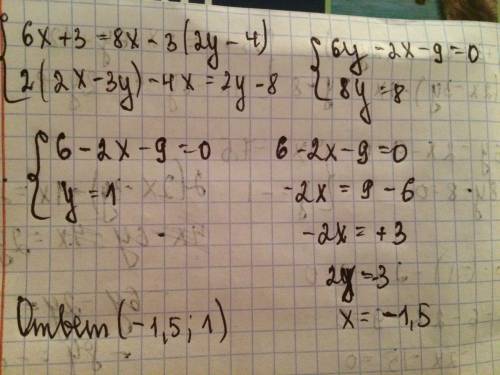 6x+3=8x-3(2y-4)
2(2x-3y)-4x=2y-8
6y-2x-9=0
8y=8
6-2x-9=0
y=1
6-2x-9=0
-2x=9-6
-2x=+3
2y=-3
x=-1,5
Ответ (-1,5; 1)